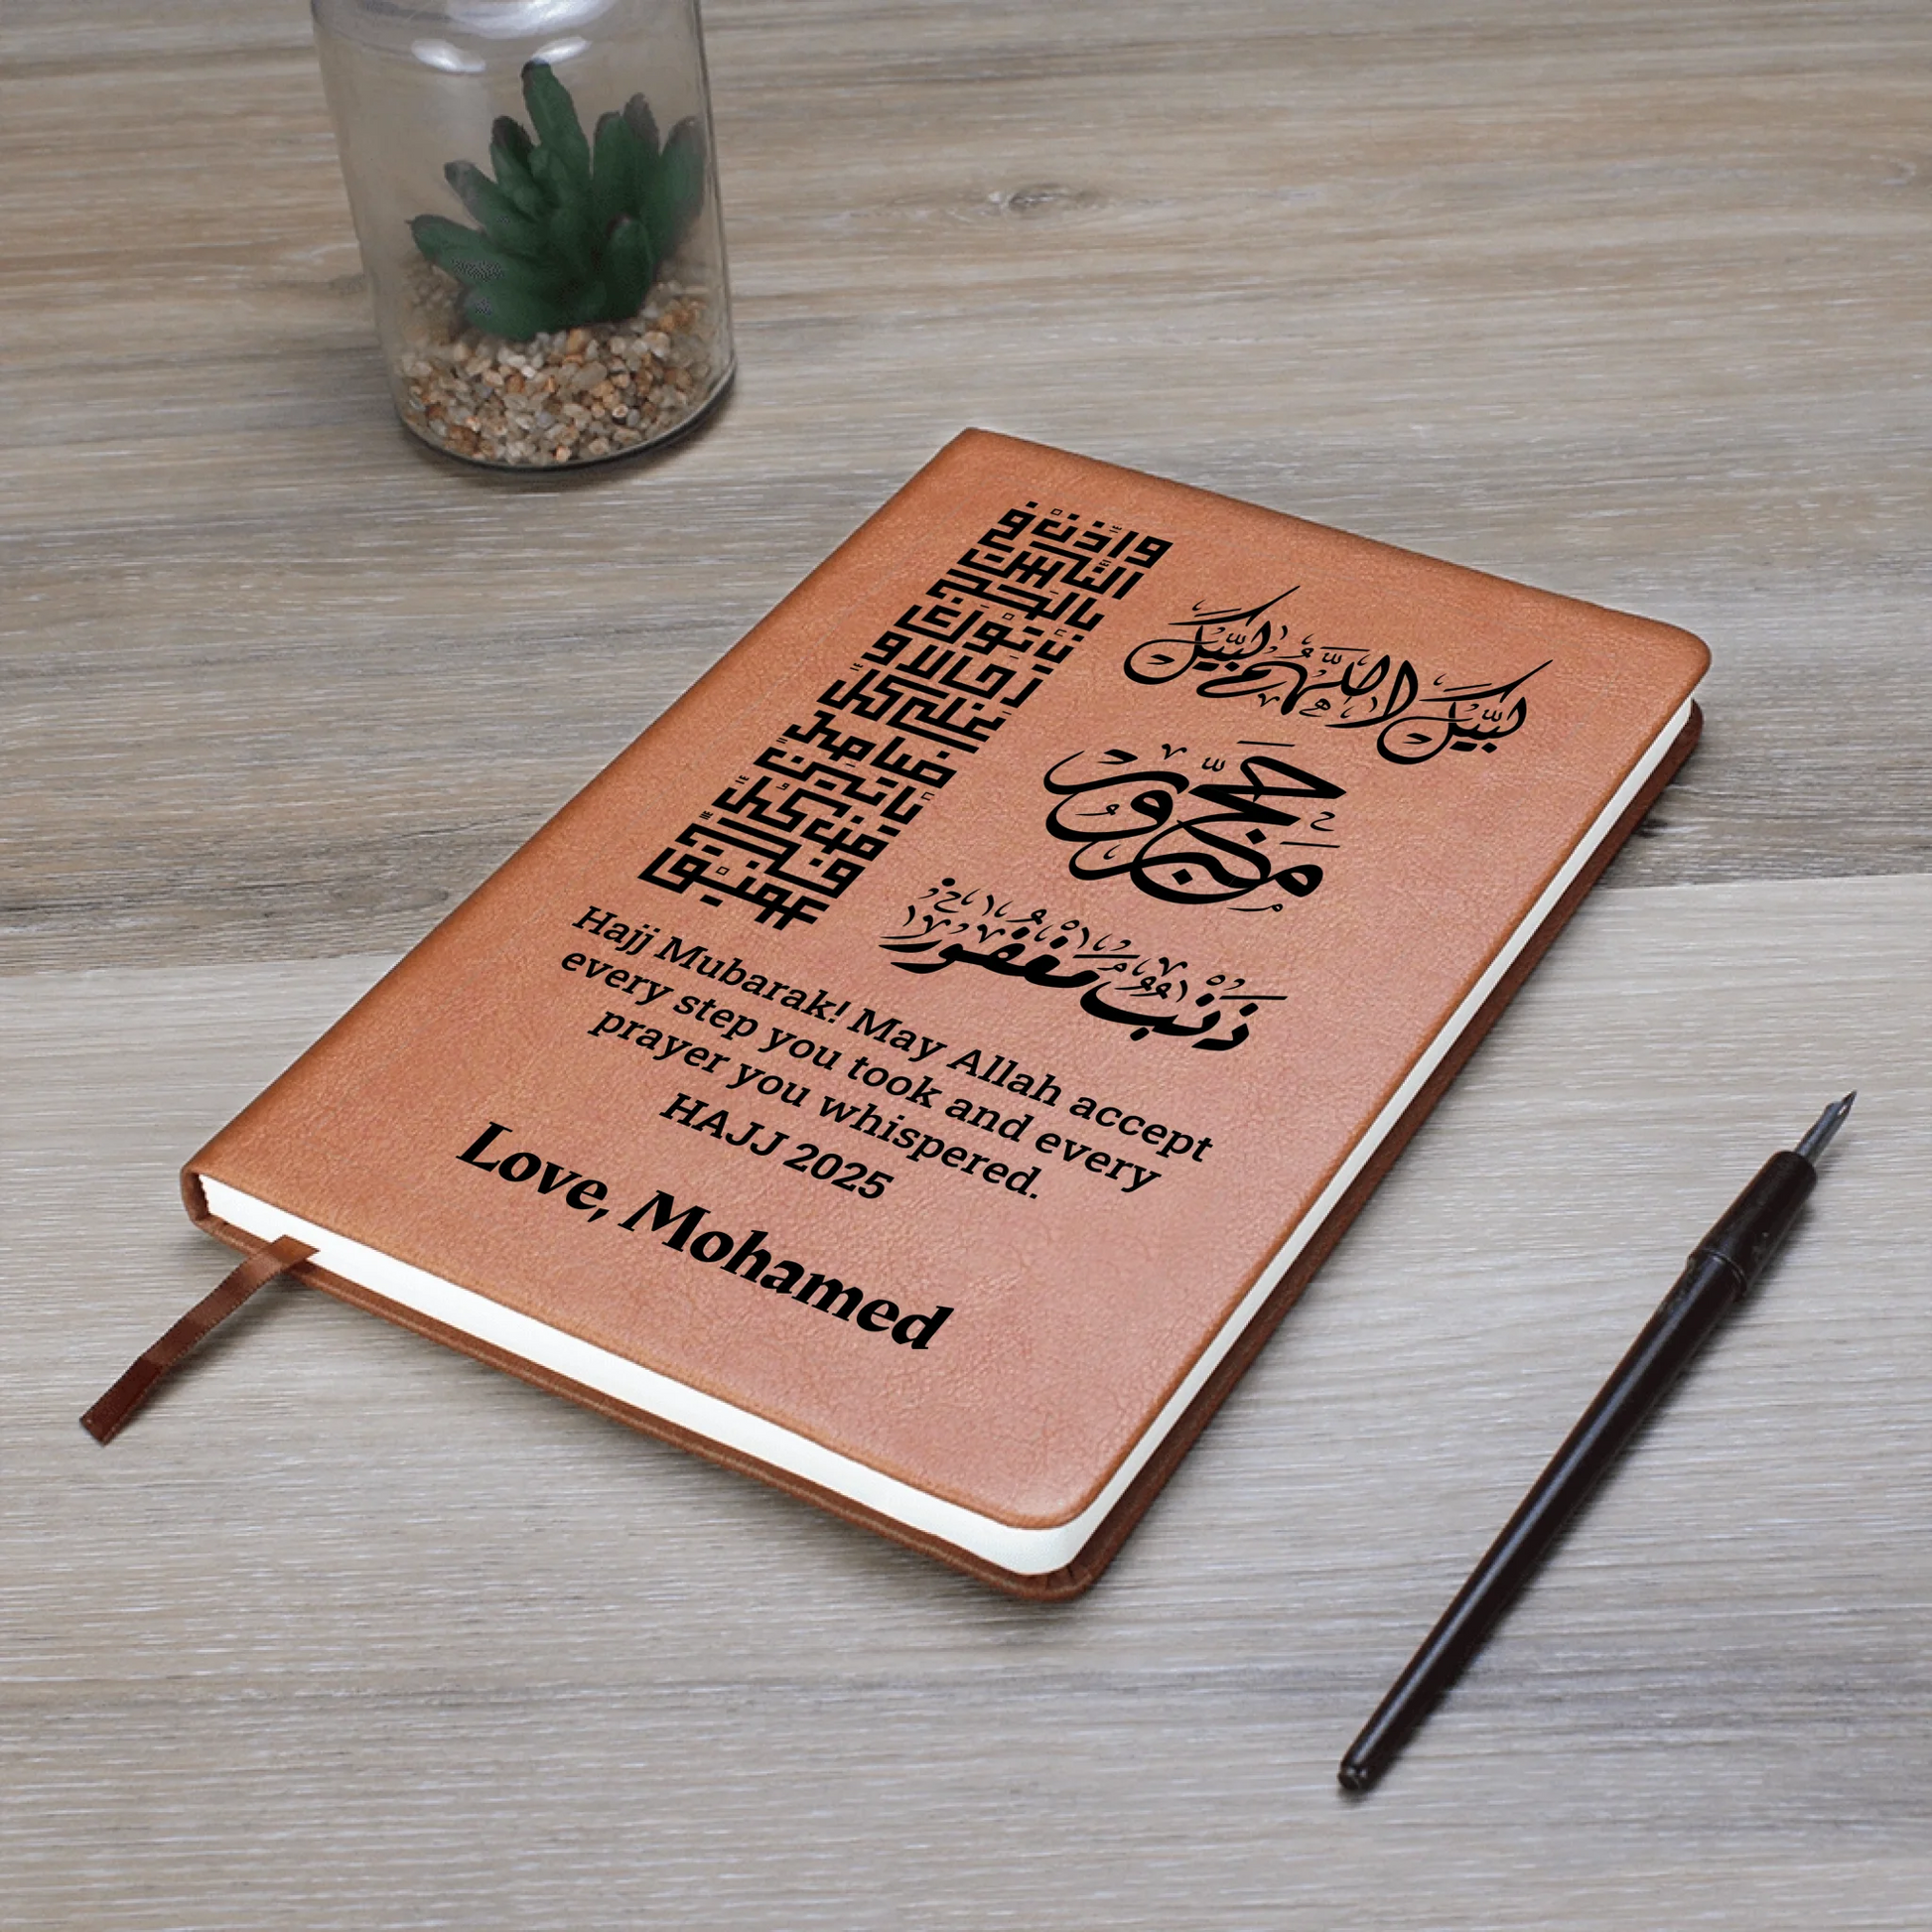 وأذن في
الناس
بالحج
يأتوك
رجالا و
على كل
ضامر
يأتين
من كل
فج
عميق
لبيك اللهم لبيك
حج
مبرور
ذنب مغفور
Hajj Mubarak! May Allah accept
every step you took and every
prayer you whispered.
HAJJ 2025
Love, Mohamed